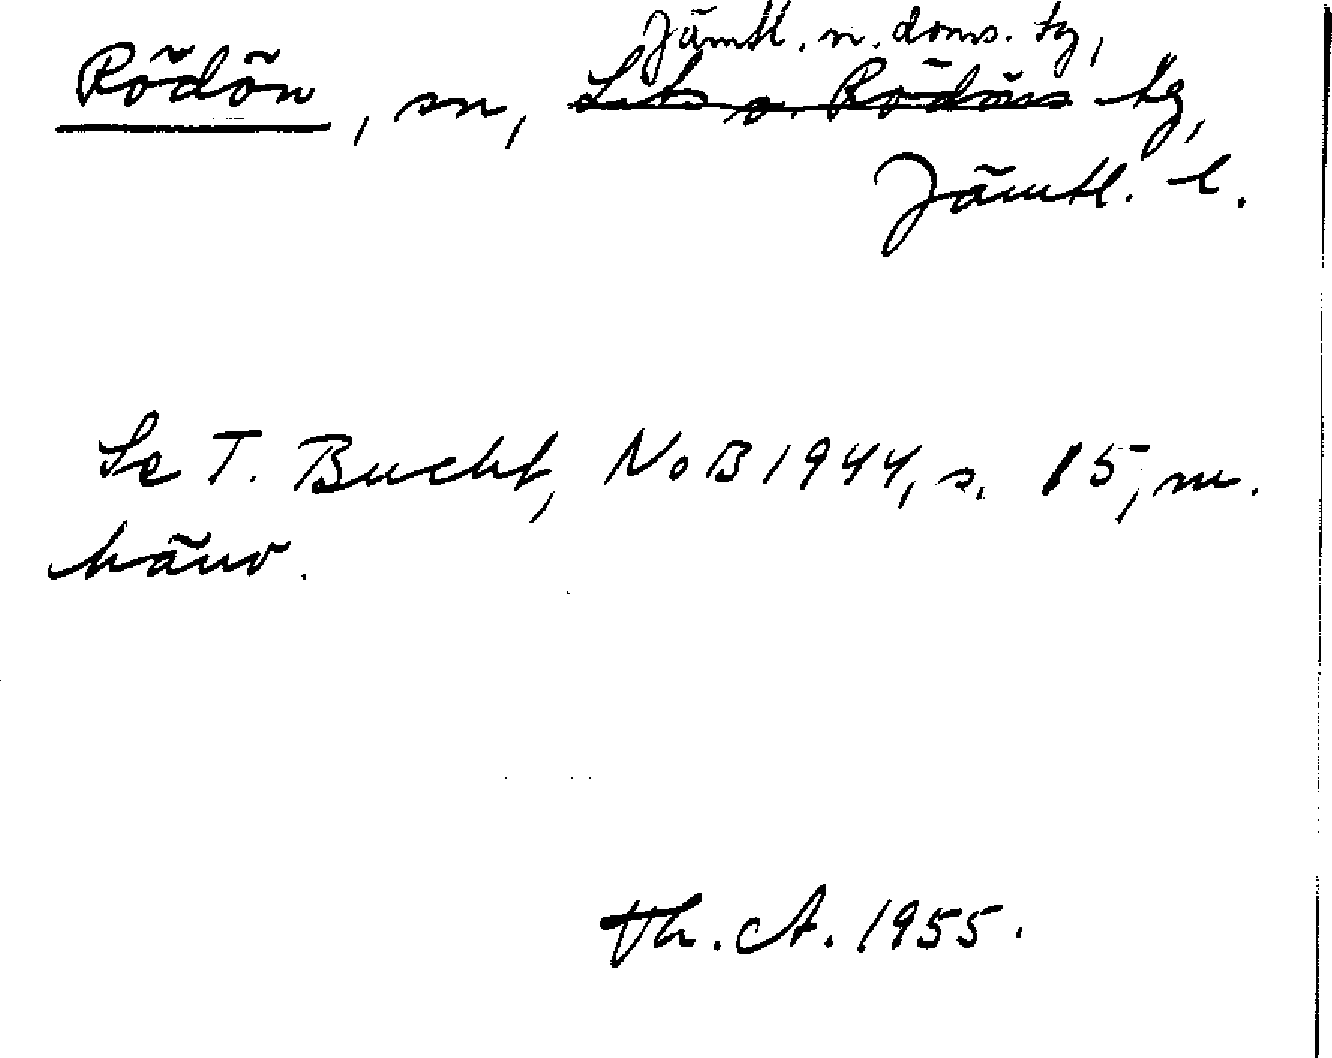 Jämtl. n. doms. tg,
Rödön, sn, Lits o. Rödöns tg,
Jämtl. l.
Se T. Bucht, NoB 1944, s. 15, m.
hänv.
Th. A. 1955.